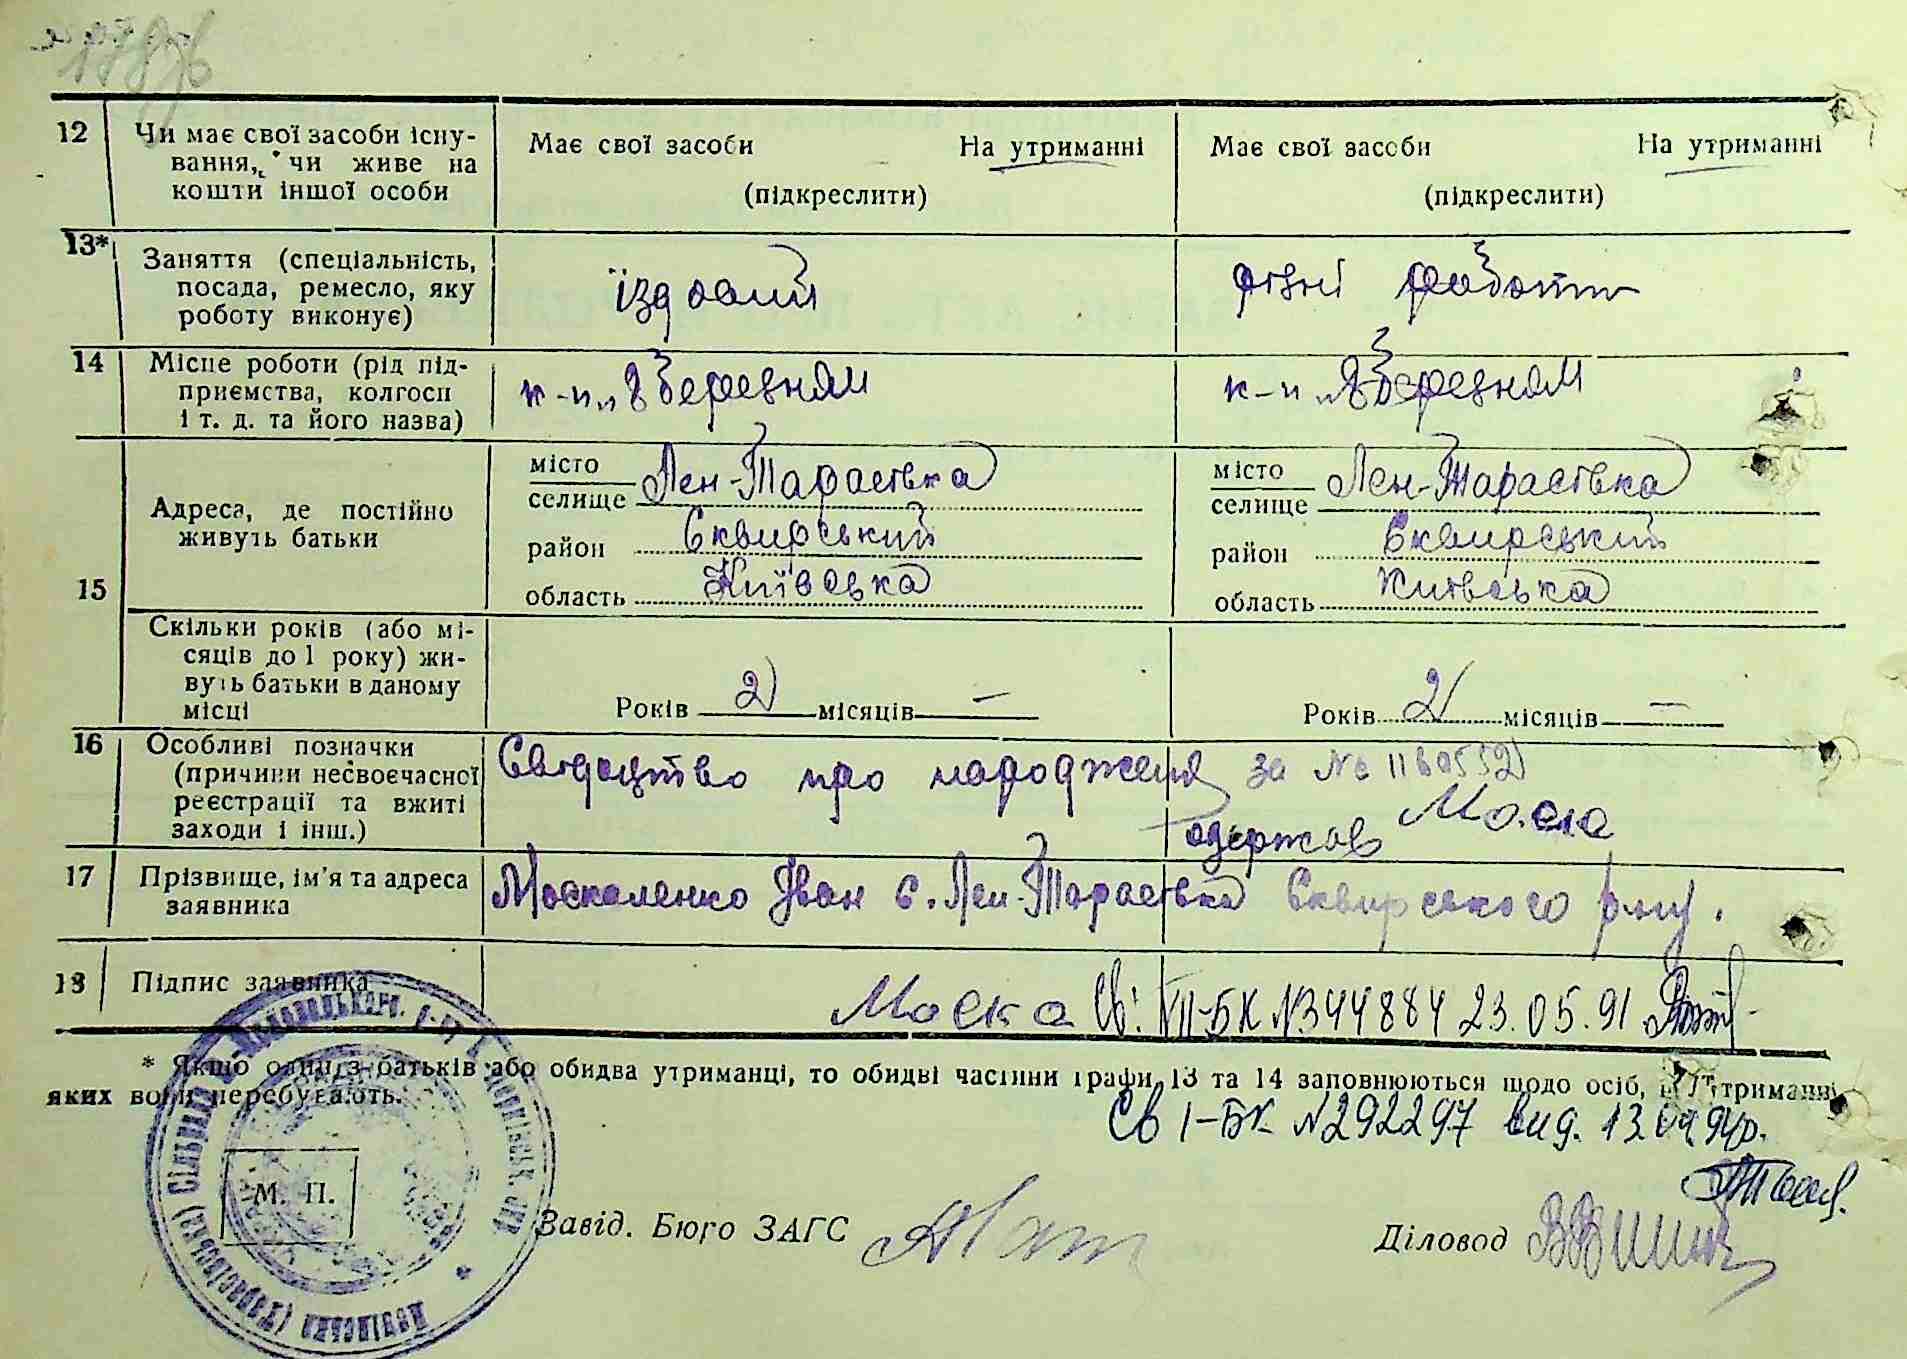 12 Чи має свої засоби існу-
вання, чи живе на
кошти іншої особи
Має свої засоби На утриманні
(підкреслити)
Має свої засоби На утриманні
(підкреслити)
13* Заняття (спеціальність,
посада, ремесло, яку
роботу виконує)
їздовий
різні роботи
14 Місце роботи (рід під-
приємства, колгосп
і т. д. та його назва)
к-п „8 Березня"
к-п „8 Березня"
15 Адреса, де постійно
живуть батьки
місто
селище Лен-Тарасівка
район Сквирський
область Київська
місто
селище Лен-Тарасівка
район Сквирський
область Київська
Скільки років (або мі-
сяців до 1 року) жи-
вуть батьки в даному
місці
Років 2 місяців —
Років 2 місяців —
16 Особливі позначки
(причини несвоєчасної
реєстрації та вжиті
заходи і інш.)
Свідоцтво про народження за №
одержав Моска
17 Прізвище, ім'я та адреса
заявника
Москаленко Іван с. Лен-Тарасівка Сквирського р-ну.
18 Підпис заявника
Моска Св: VII-БК №344884 23.05.91
* Якщо один з батьків або обидва утриманці, то обидві частини графи 13 та 14 заповнюються щодо осіб, на утриманні
яких вони перебувають.
Св I-БК №292297 вид.
М. П.
Завід. Бюро ЗАГС
Діловод